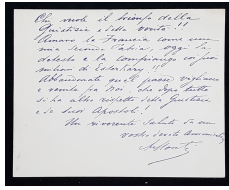 Chi vuole il trionfo della
Giustizia e della verità!!
Amavo la Francia come una
mia seconda Patria, oggi la
detesto e la compiango
Abbandonate quel paese
e venite fra noi, che dopo tutto
si ha altro rispetto della Giustizia
e de' suoi Apostoli!
Un riverente saluto da un
vostro devoto